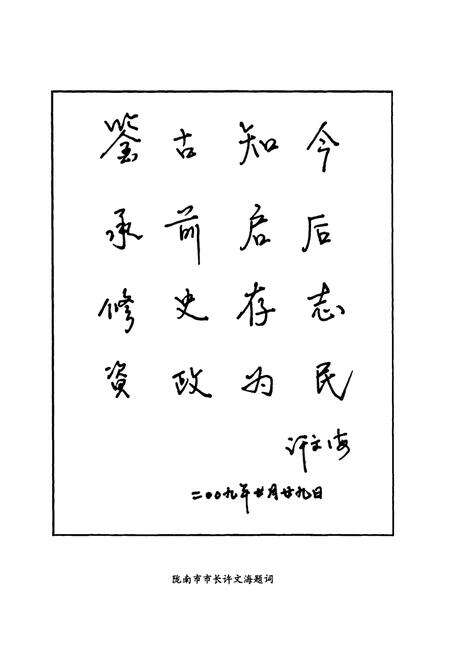 鉴古知今
承前启后
修史存志
资政为民
许文海
二〇〇九年 月廿九日
陇南市市长许文海题词